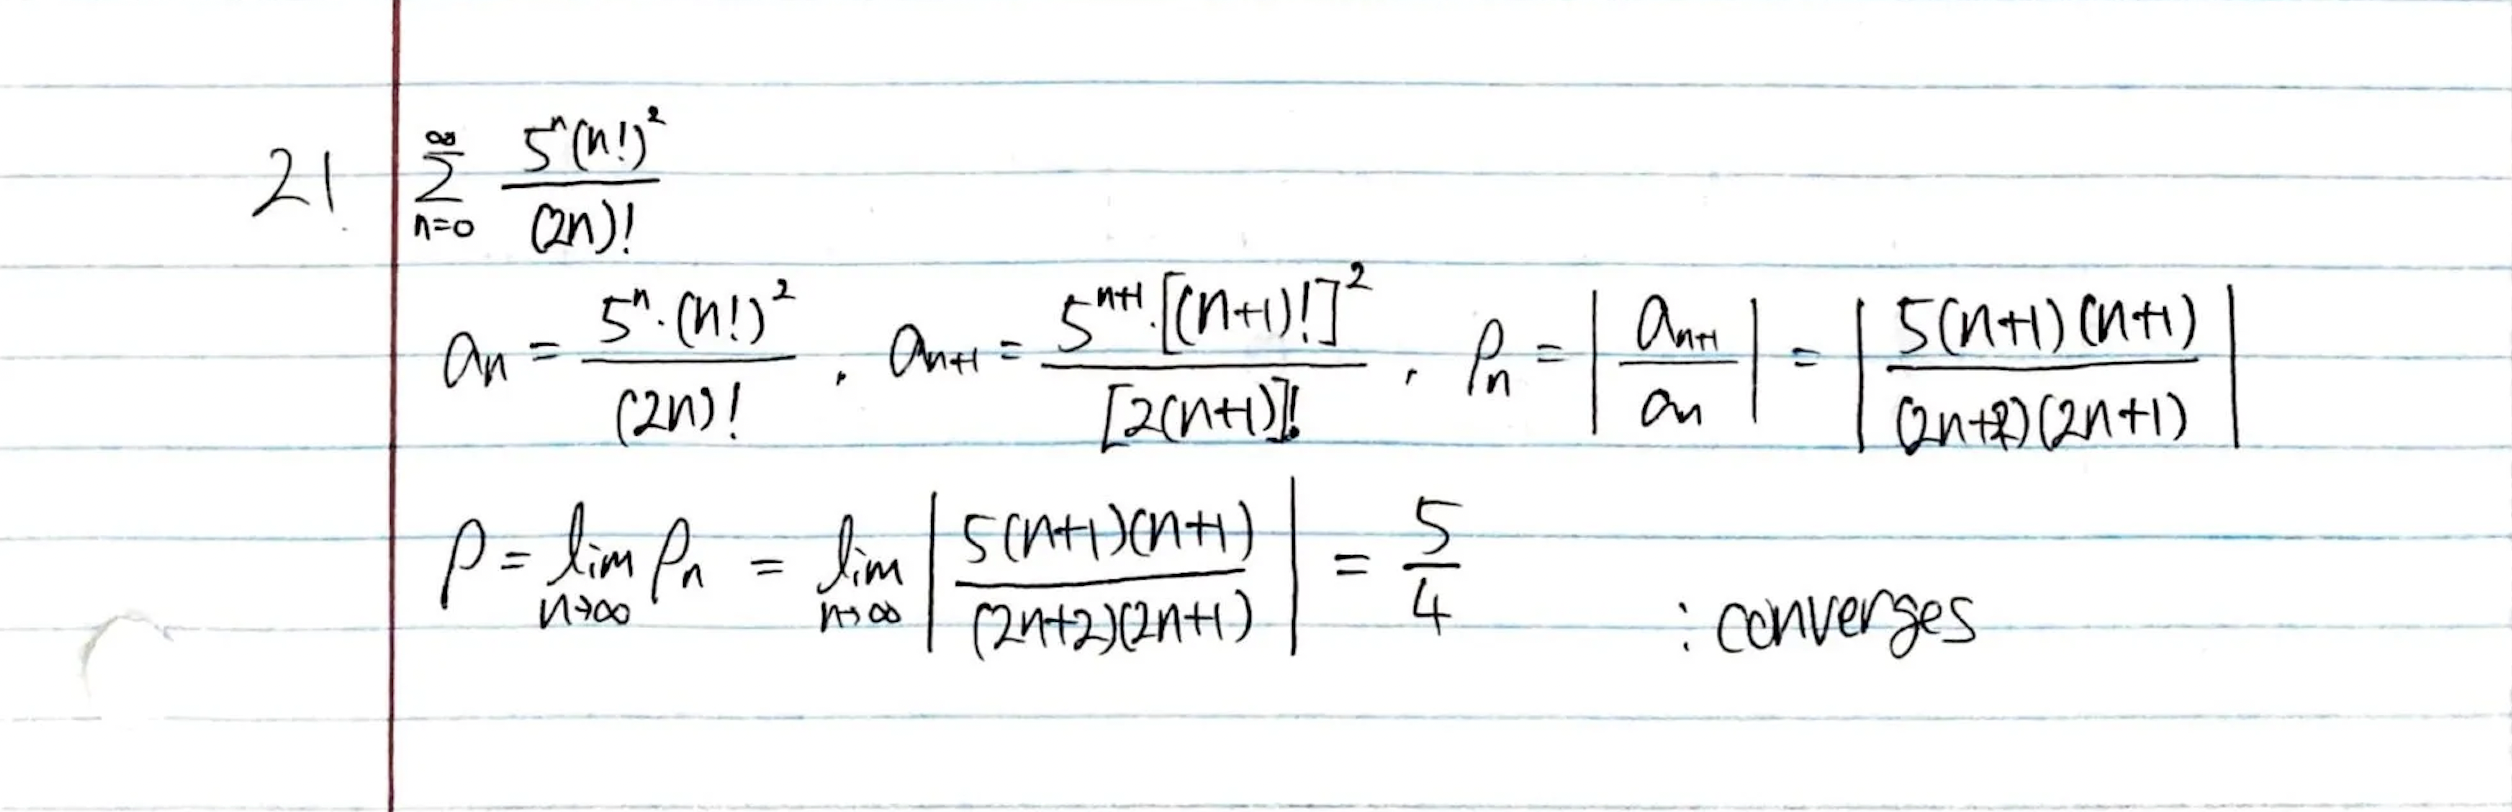 21. \sum_{n=0}^{\infty} \frac{5^n (n!)^2}{(2n)!}
a_n = \frac{5^n \cdot (n!)^2}{(2n)!}, a_{n+1} = \frac{5^{n+1} \cdot [(n+1)!]^2}{[2(n+1)]!}, \rho_n = \left| \frac{a_{n+1}}{a_n} \right| = \left| \frac{5(n+1)(n+1)}{(2n+2)(2n+1)} \right|
\rho = \lim_{n \to \infty} \rho_n = \lim_{n \to \infty} \left| \frac{5(n+1)(n+1)}{(2n+2)(2n+1)} \right| = \frac{5}{4} : converges